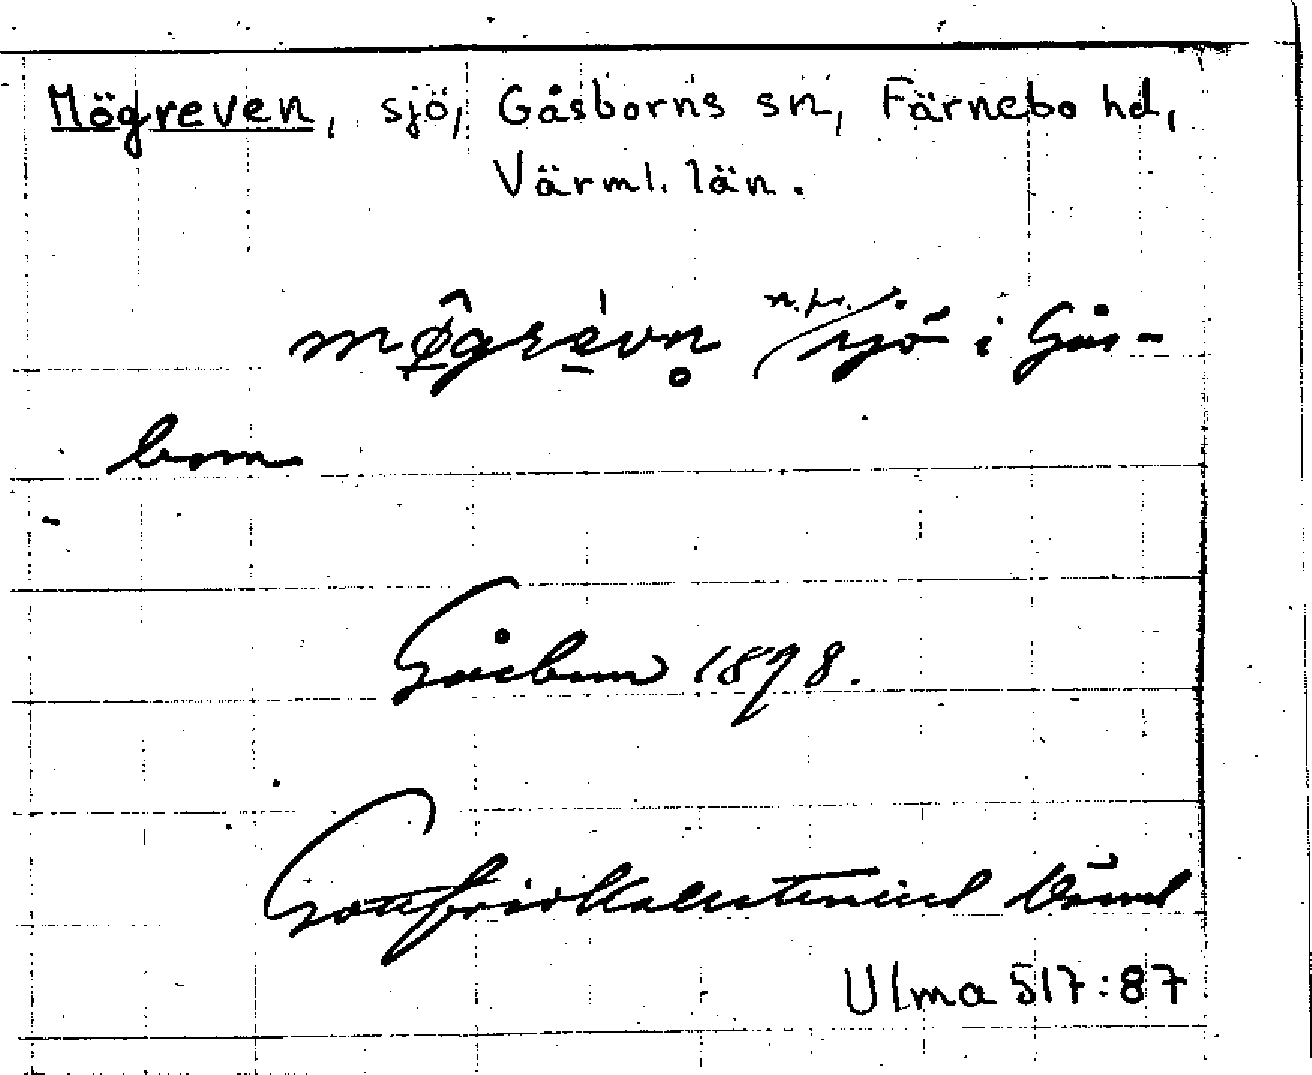 Mögreven, sjö, Gåsborns sn, Färnebo hd,
Värml. län.
møgrevn n.pr. sjö i Gås-
born
Gåsborn 1898.
Gottfrid Kallstenius Värml
Ulma 517:87